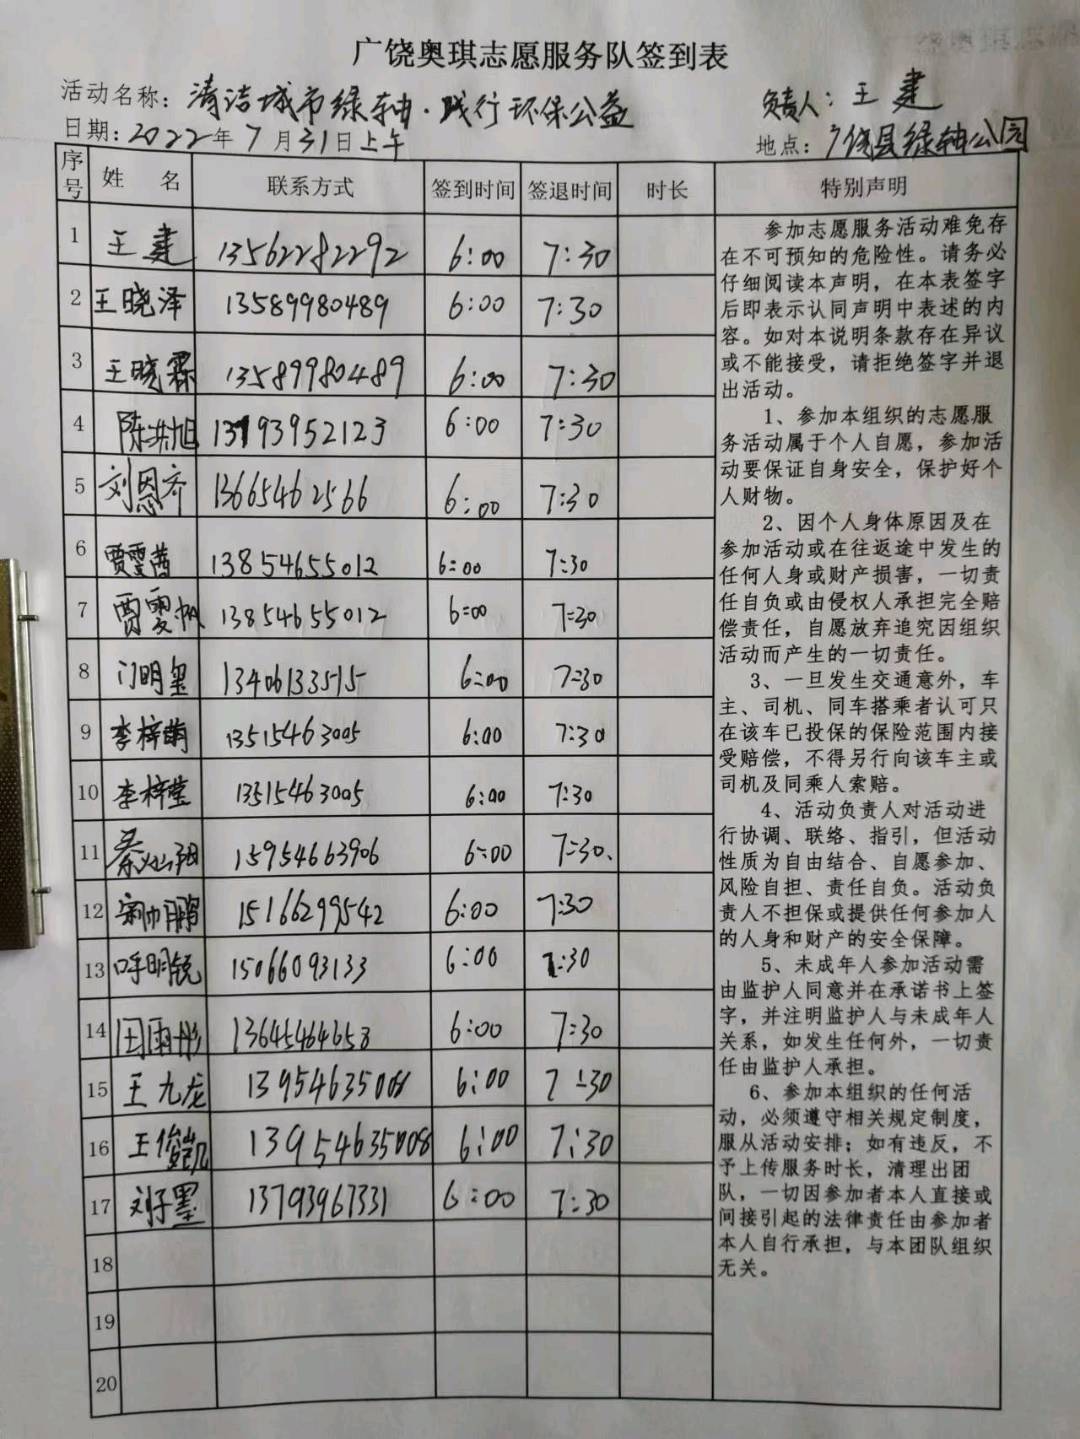 广饶奥琪志愿服务队签到表
活动名称：清洁城市绿轴·践行环保公益 负责人：王建
日期：2022年7月31日上午 地点：广饶县绿轴公园
序号 姓名 联系方式 签到时间 签退时间 时长 特别声明
1 王建 13562282292 6:00 7:30
2 王晓泽 13589980489 6:00 7:30
3 王晓霖 13589980489 6:00 7:30
4 陈洪旭 13793952123 6:00 7:30
5 刘恩齐 13665462566 6:00 7:30
6 贾雯茜 13854655012 6:00 7:30
7 贾雯帆 13854655012 6:00 7:30
8 门明玺 13406133515 6:00 7:30
9 李梓萌 13515463005 6:00 7:30
10 李梓莹 13515463005 6:00 7:30
11 秦灿阳 15954663906 6:00 7:30
12 鹏 15166299542 6:00 7:30
13 呼明锐 15066093133 6:00 7:30
14 田雨彤 13645464658 6:00 7:30
15 王九龙 13954635008 6:00 7:30
16 王俊凯 13954635008 6:00 7:30
17 刘子墨 13793967331 6:00 7:30
18
19
20
参加志愿服务活动难免存
在不可预知的危险性。请务必
仔细阅读本声明，在本表签字
后即表示认同声明中表述的内
容。如对本说明条款存在异议
或不能接受，请拒绝签字并退
出活动。
1、参加本组织的志愿服
务活动属于个人自愿，参加活
动要保证自身安全，保护好个
人财物。
2、因个人身体原因及在
参加活动或在往返途中发生的
任何人身或财产损害，一切责
任自负或由侵权人承担完全赔
偿责任，自愿放弃追究因组织
活动而产生的一切责任。
3、一旦发生交通意外，车
主、司机、同车搭乘者认可只
在该车已投保的保险范围内接
受赔偿，不得另行向该车主或
司机及同乘人索赔。
4、活动负责人对活动进
行协调、联络、指引，但活动
性质为自由结合、自愿参加、
风险自担、责任自负。活动负
责人不担保或提供任何参加人
的人身和财产的安全保障。
5、未成年人参加活动需
由监护人同意并在承诺书上签
字，并注明监护人与未成年人
关系，如发生任何外，一切责
任由监护人承担。
6、参加本组织的任何活
动，必须遵守相关规定制度，
服从活动安排；如有违反，不
予上传服务时长，清理出团
队，一切因参加者本人直接或
间接引起的法律责任由参加者
本人自行承担，与本团队组织
无关。